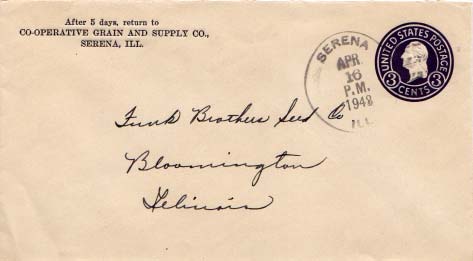 After 5 days, return to
CO-OPERATIVE GRAIN AND SUPPLY CO.,
SERENA, ILL.
UNITED STATES POSTAGE
3 CENTS 3
SERENA
APR
16
P.M.
1948
ILL
Funk Brothers Seed Co
Bloomington
Illinois